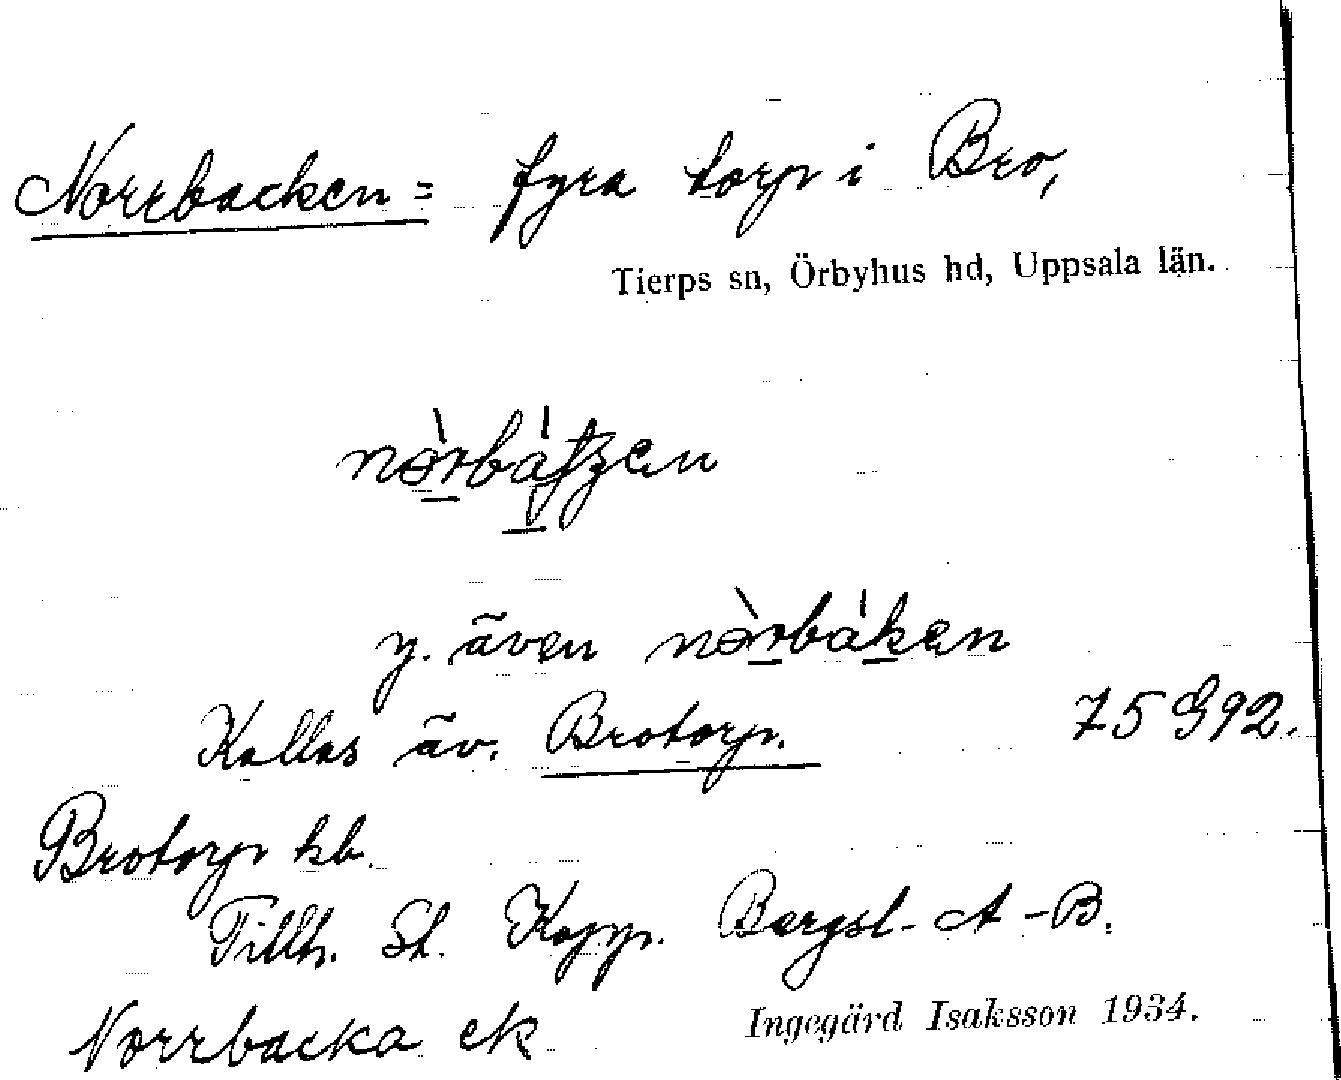 Norrbacken = fyra torp i Bro,
Tierps sn, Örbyhus hd, Uppsala län.
y. även nòrbáken
Kallas äv. Brotorp. 75 G92.
Brotorp kb.
Tillh. St. Kopp. Bergsl. A-B.
Norrbacka ek
Ingegärd Isaksson 1934.